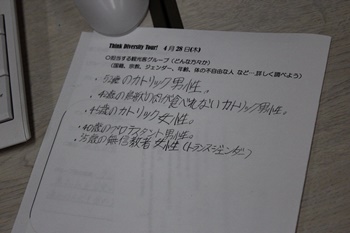 Think Diversity Tour! 4月28日(木)
○担当する観光客グループ(どんな方々か)
(国籍、宗教、ジェンダー、年齢、体の不自由な人 など…詳しく調べよう)
歳のカトリック男性。
歳の鳥獣の肉が食べれないカトリック男性。
歳のカトリック女性。
・40歳のプロテスタント男性。
歳の無信教者女性(トランスジェンダー)